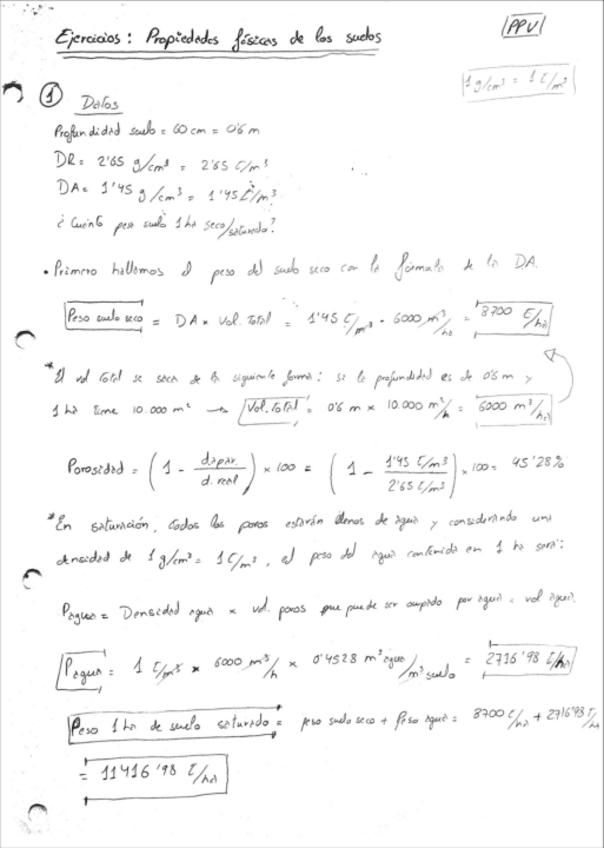 Ejercicios: Propiedades físicas de los suelos
PPV
1 g/cm³ = 1 t/m³
① Datos
Profundidad suelo = 60 cm = 0'6 m
DR = 2'65 g/cm³ = 2'65 t/m³
DA = 1'45 g/cm³ = 1'45 t/m³
¿Cuánto pesa suelo 1 ha seco/saturado?
• Primero hallamos el peso del suelo seco con la fórmula de la DA.
Peso suelo seco = DA × Vol. Total = 1'45 t/m³ · 6000 m³/ha = 8700 t/ha
* El vol total se saca de la siguiente forma: si la profundidad es de 0'6 m y
1 ha tiene 10.000 m² → Vol. total = 0'6 m × 10.000 m²/h = 6000 m³/ha
Porosidad = (1 - dapar./d. real) × 100 = (1 - 1'45 t/m³/2'65 t/m³) × 100 = 45'28%
* En saturación, todos los poros estarán llenos de agua y considerando una
densidad de 1 g/cm³ = 1 t/m³, el peso del agua contenida en 1 ha será:
Pagua = Densidad agua × vol. poros que puede ser ocupado por agua = vol agua.
Pagua = 1 t/m³ × 6000 m³/h × 0'4528 m³ agua/m³ suelo = 2716'98 t/ha
Peso 1 ha de suelo saturado = peso suelo seco + Peso agua = 8700 t/ha + 2716'98 t/ha
= 11416'98 t/ha